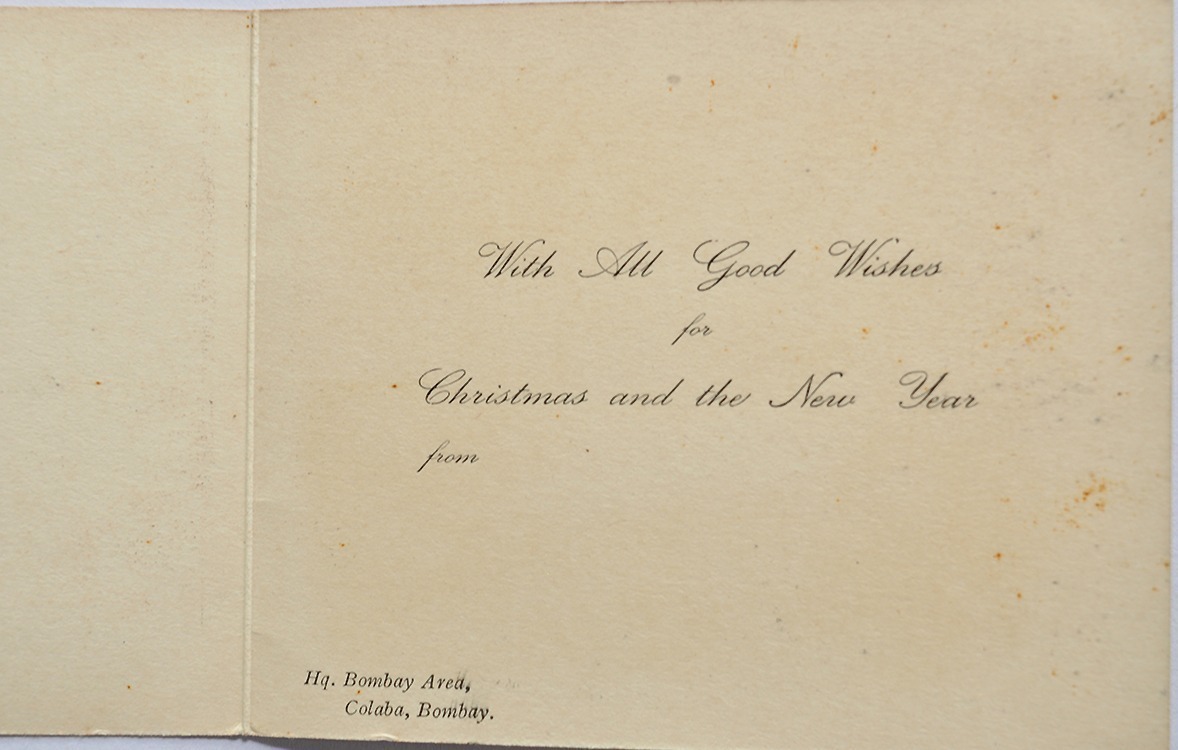 With All Good Wishes
for
Christmas and the New Year
from
Hq. Bombay Area,
Colaba, Bombay.